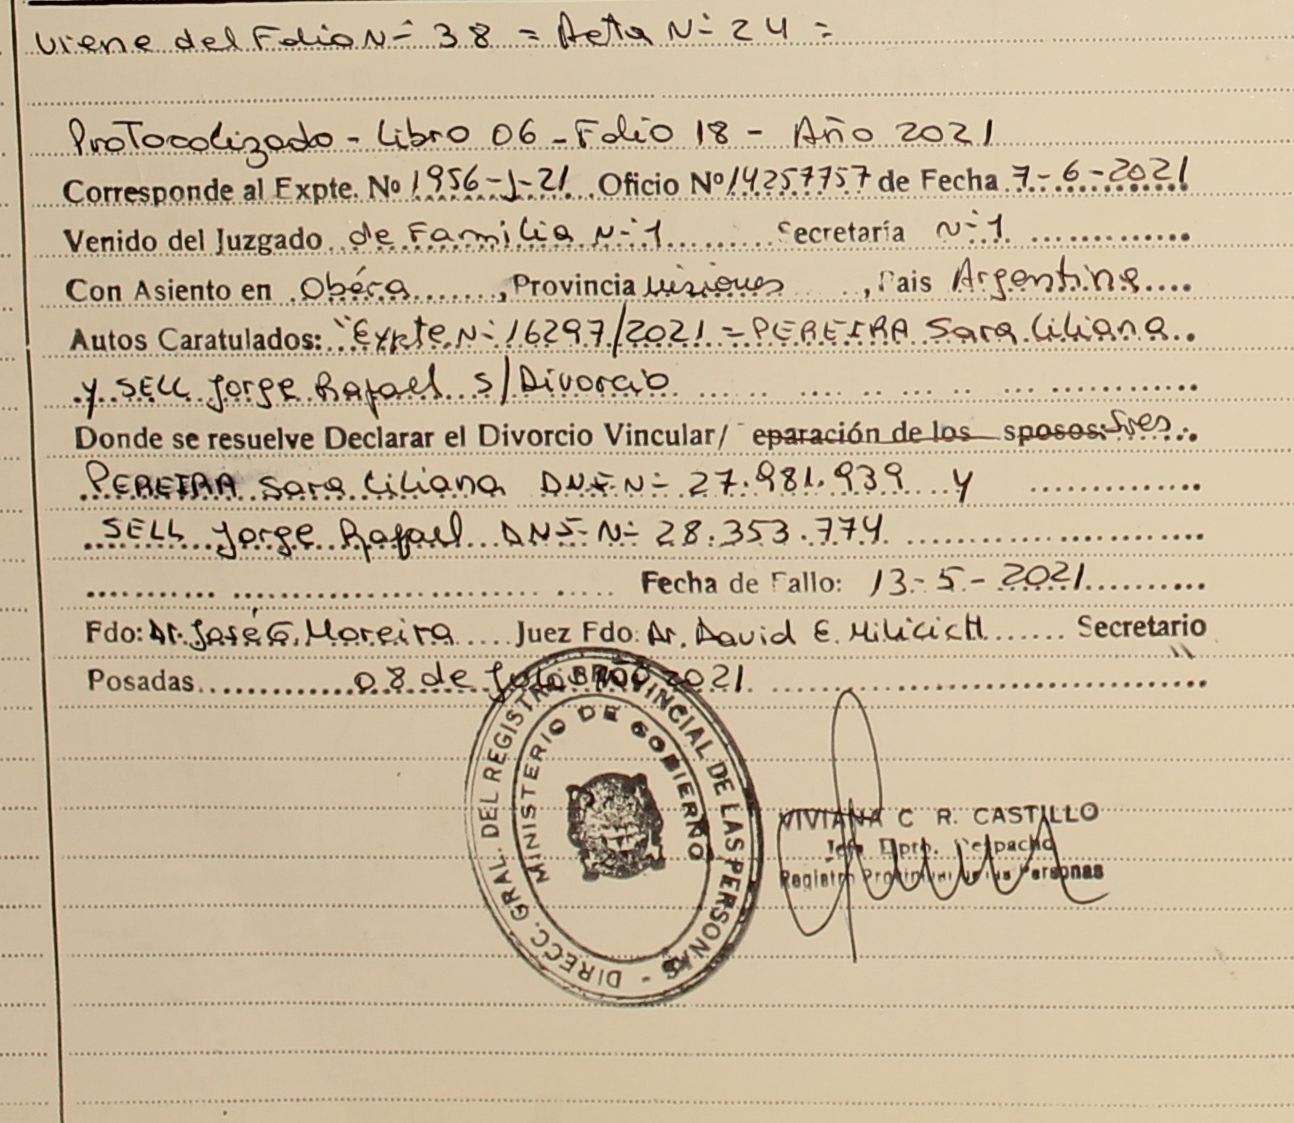 viene del Folio N- 38 = Acta N- 24 =
Protocolizado - Libro 06 - Folio 18 - Año 2021
Corresponde al Expte. Nº 1956-J-21 Oficio Nº 14257757 de Fecha 7-6-2021
Venido del Juzgado de Familia N-1 Secretaría N-1
Con Asiento en Obéra, Provincia Misiones, Pais Argentina
Autos Caratulados: "Expte N- 16297/2021 = PEREIRA Sara Liliana
y SELL Jorge Rafael S/Divorcio
Donde se resuelve Declarar el Divorcio Vincular/ eparación de los sposos: Sres
PEREIRA Sara Liliana DNI N- 27.981.939 y
SELL Jorge Rafael DNI-N- 28.353.774
Fecha de Fallo: 13-5-2021
Fdo: Dr. José G. Moreira Juez Fdo: Dr. David E. Milicich Secretario
Posadas 08 de 2021
DIRECC. GRAL. DEL REGISTRO PROVINCIAL DE LAS PERSONAS -
MINISTERIO DE GOBIERNO
VIVIANA C R. CASTILLO
Jefe Dpto. Despacho
Registro Provincial de las Personas